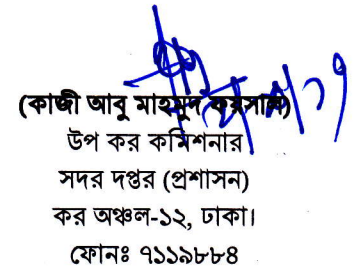 (কাজী আবু মাহমুদ ফয়সাল)
উপ কর কমিশনার
সদর দপ্তর (প্রশাসন)
কর অঞ্চল-১২, ঢাকা।
ফোনঃ ৭১১৯৮৮৪